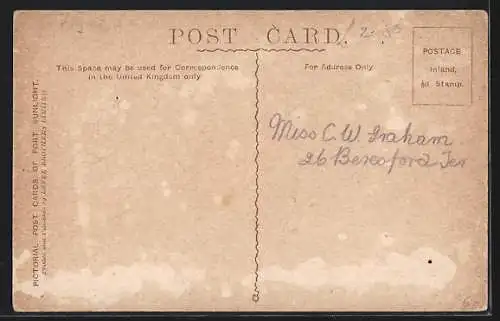 POST CARD.
This Space may be used for Correspondence
in the United Kingdom only
For Address Only
POSTAGE
Inland,
½d Stamp.
PICTORIAL POST CARDS OF PORT SUNLIGHT.
LEVER BROTHERS LIMITED
Miss C. W. Graham
26 Beresford Ter